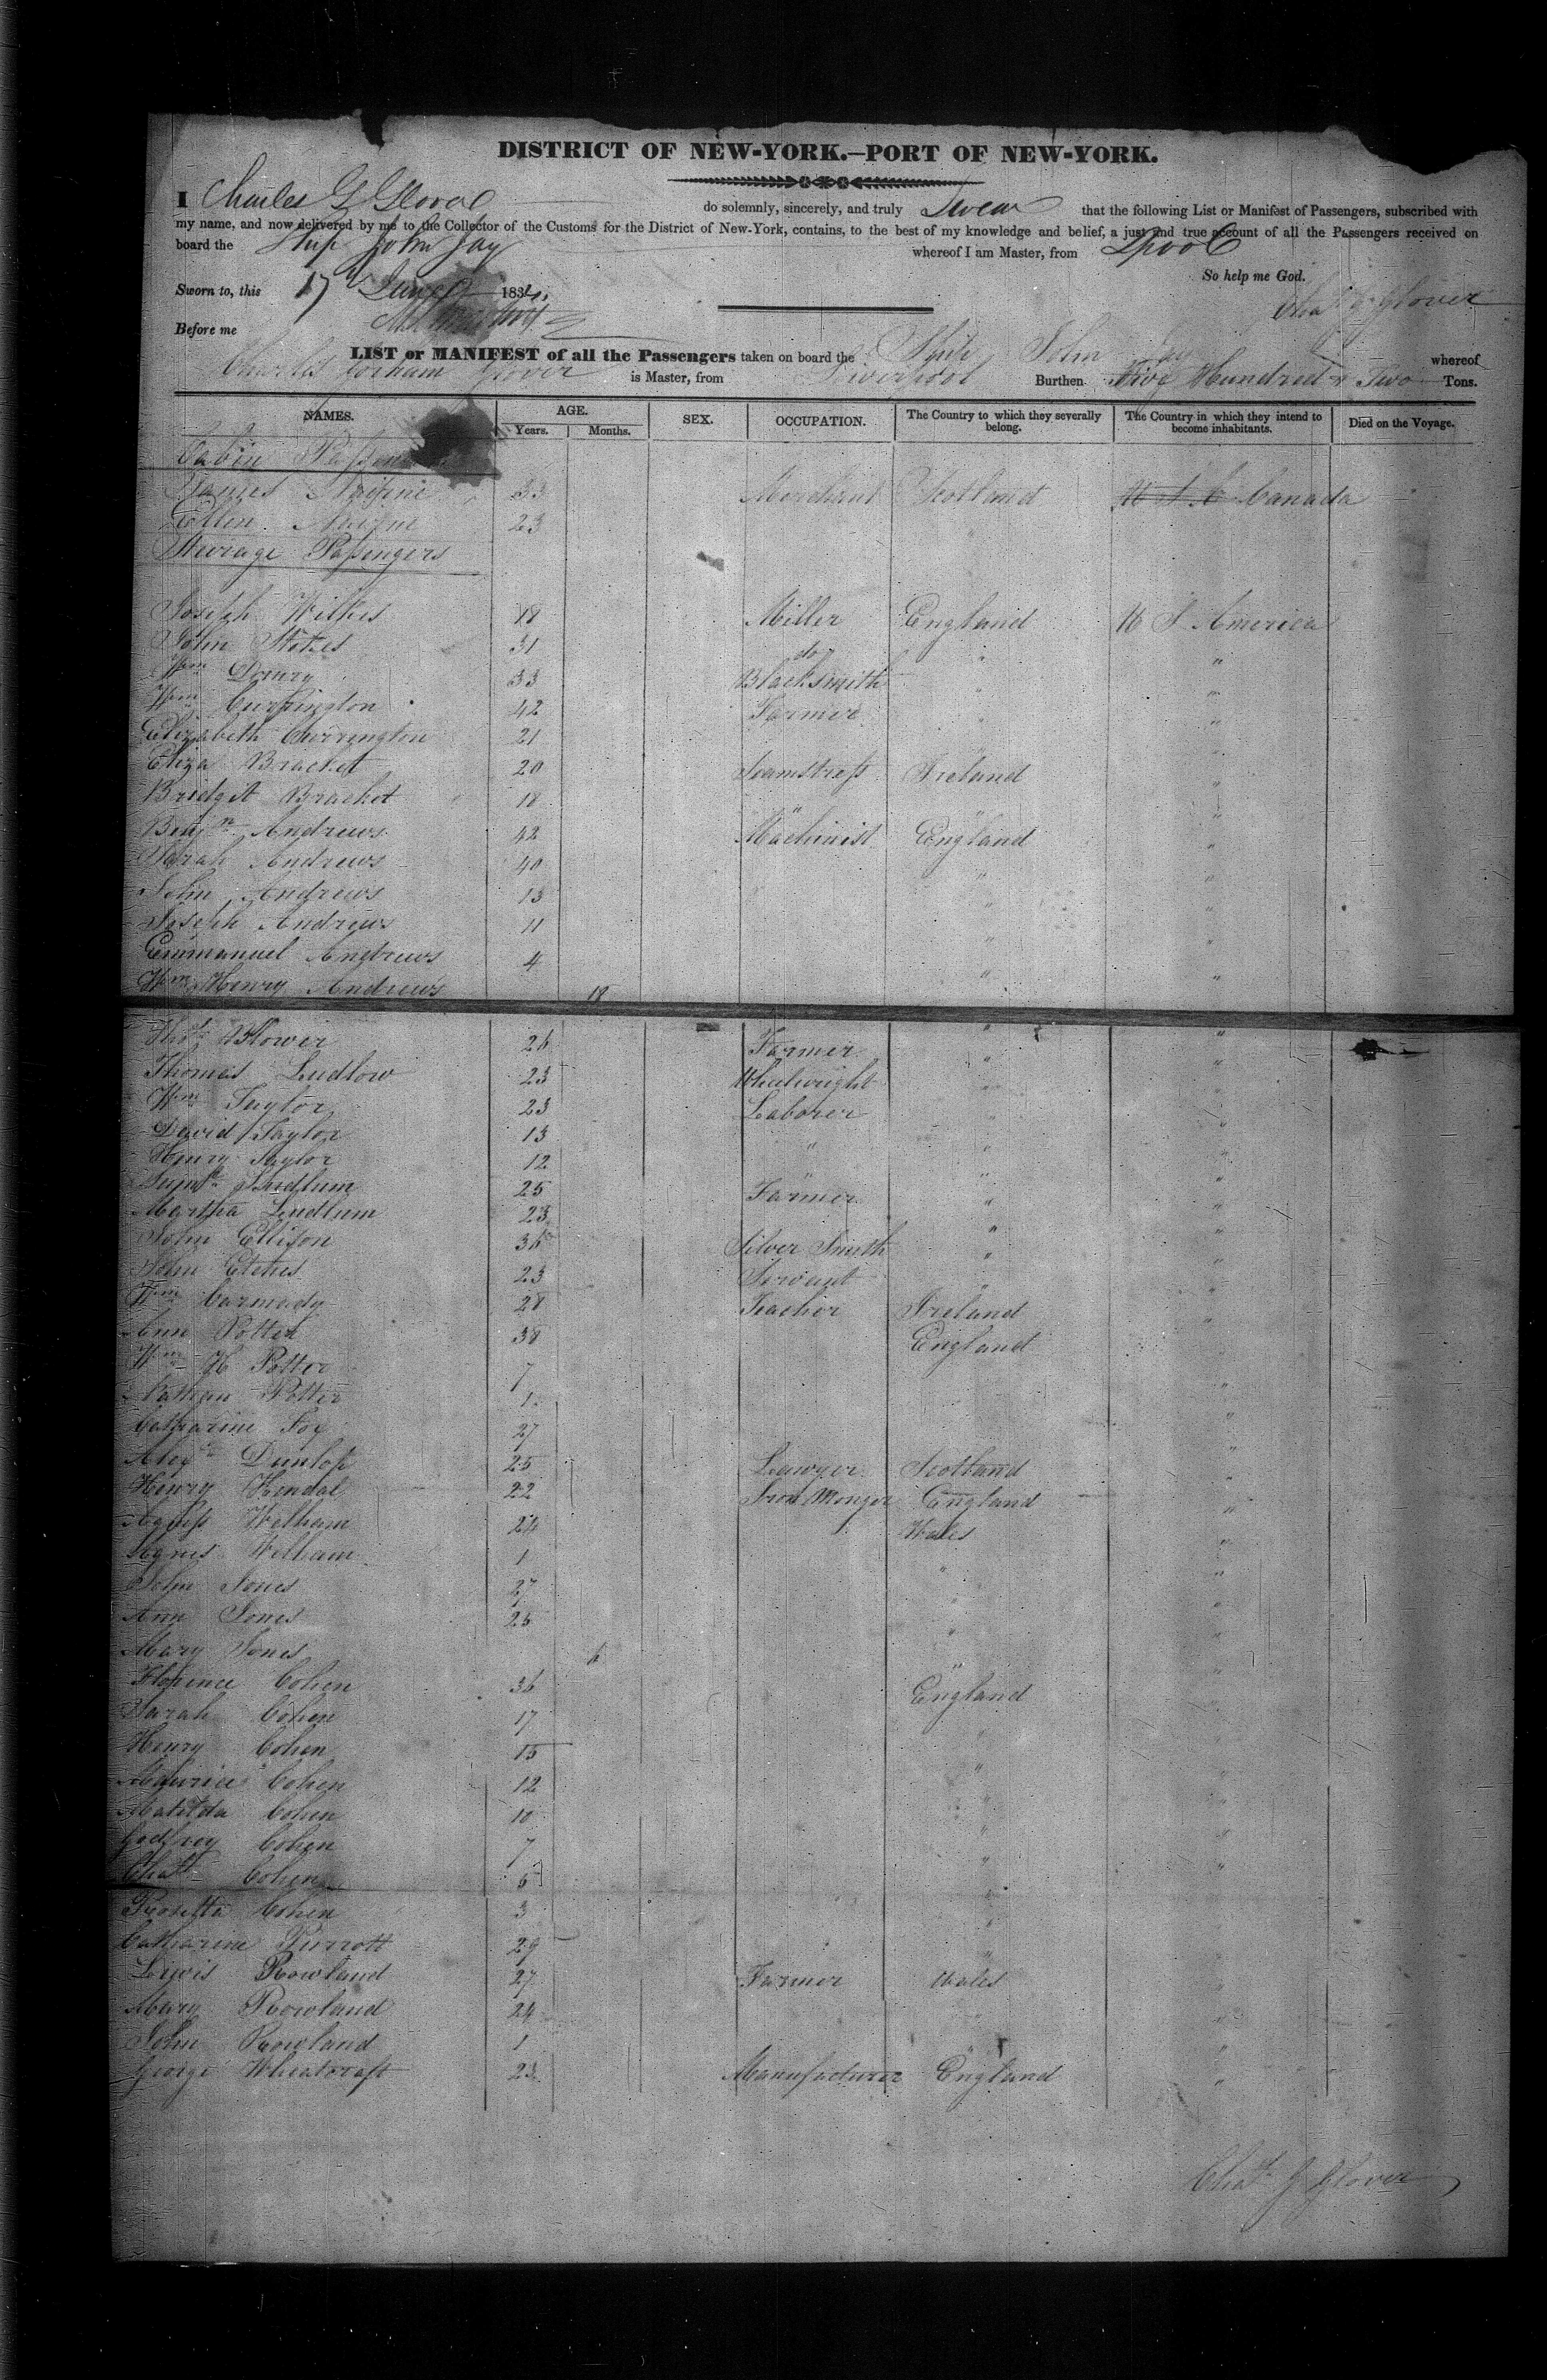 DISTRICT OF NEW-YORK.—PORT OF NEW-YORK.
I Charles G Glover do solemnly, sincerely, and truly Swear that the following List or Manifest of Passengers, subscribed with
my name, and now delivered by me to the Collector of the Customs for the District of New-York, contains, to the best of my knowledge and belief, a just and true account of all the Passengers received on
board the Ship John Jay whereof I am Master, from Lpool
So help me God.
Sworn to, this 17th June 1834.
Chas G Glover
Before me
LIST or MANIFEST of all the Passengers taken on board the Ship John Jay whereof
Charles Gorham Glover is Master, from Liverpool Burthen Five Hundred & Two Tons.
NAMES. AGE. Years. Months. SEX. OCCUPATION. The Country to which they severally belong. The Country in which they intend to become inhabitants. Died on the Voyage.
Cabin Passengers
James 33 Merchant Scotland U S A Canada
Ellen 23
Steerage Passengers
Joseph Wilkes 18 Miller England U S America
John Stokes 31 do " "
Wm Drury 33 Blacksmith " "
Wm Currington 42 Farmer " "
Elizabeth Currington 21 " "
Eliza Bracket 20 Seamstress Ireland "
Bridget Bracket 18 " " "
Benjn Andrews 42 Machinist England "
Sarah Andrews 40 " "
John Andrews 13 " "
Joseph Andrews 11 " "
Emmanuel Andrews 4 " "
Wm Henry Andrews 18 " "
Thos Flower 26 Farmer " "
Thomas Ludlow 23 Wheelwright " "
Wm Taylor 23 Laborer " "
David Taylor 13 " " "
Henry Taylor 12 " " "
Ludlum 25 Farmer " "
Martha Ludlum 23 " "
John Ellison 36 Silver Smith " "
John Etches 23 Servant " "
Wm Carmody 28 Teacher Ireland "
Ann Potter 38 England
Wm H Potter 7 "
Nathan Potter 1 "
Catharine Fox 27 "
Alexr Dunlop 25 Lawyer Scotland "
Henry Kendal 22 Iron Monger England "
Agness Welham 24 Wales "
Agnes Welham 1 " "
John Jones 27 " "
Ann Jones 25 "
Mary Jones 6 " "
Florence Cohen 36 England
Sarah Cohen 17 "
Henry Cohen 15 "
Maurice Cohen 12 " "
Matilda Cohen 10 " "
Godfrey Cohen 7 " "
Chas Cohen 5 "
Rosetta Cohen 3 "
Catharine Perrott 29 "
Lewis Rowland 27 Farmer Wales
Mary Rowland 24
John Rowland 1 " "
George Wheatcraft 23 Manufacturer England "
Chas G Glover